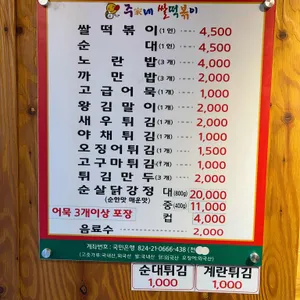 쌀떡볶이(1인) 4,500
순대(1인) 4,500
노란밥(3개) 4,000
까만밥(3개) 2,000
고급어묵(1개) 1,000
왕김말이(1개) 2,000
새우튀김(1개) 2,000
야채튀김(1개) 1,000
오징어튀김(1개) 1,500
고구마튀김(1개) 1,000
튀김만두(3개) 2,000
순살닭강정 대(800g) 20,000
(순한맛 매운맛) 중(400g) 11,000
어묵 3개이상 포장 컵 4,000
음료수 2,000
계좌번호 : 국민은행 824-21-0666-438
순대튀김 1,000
계란튀김 1,000